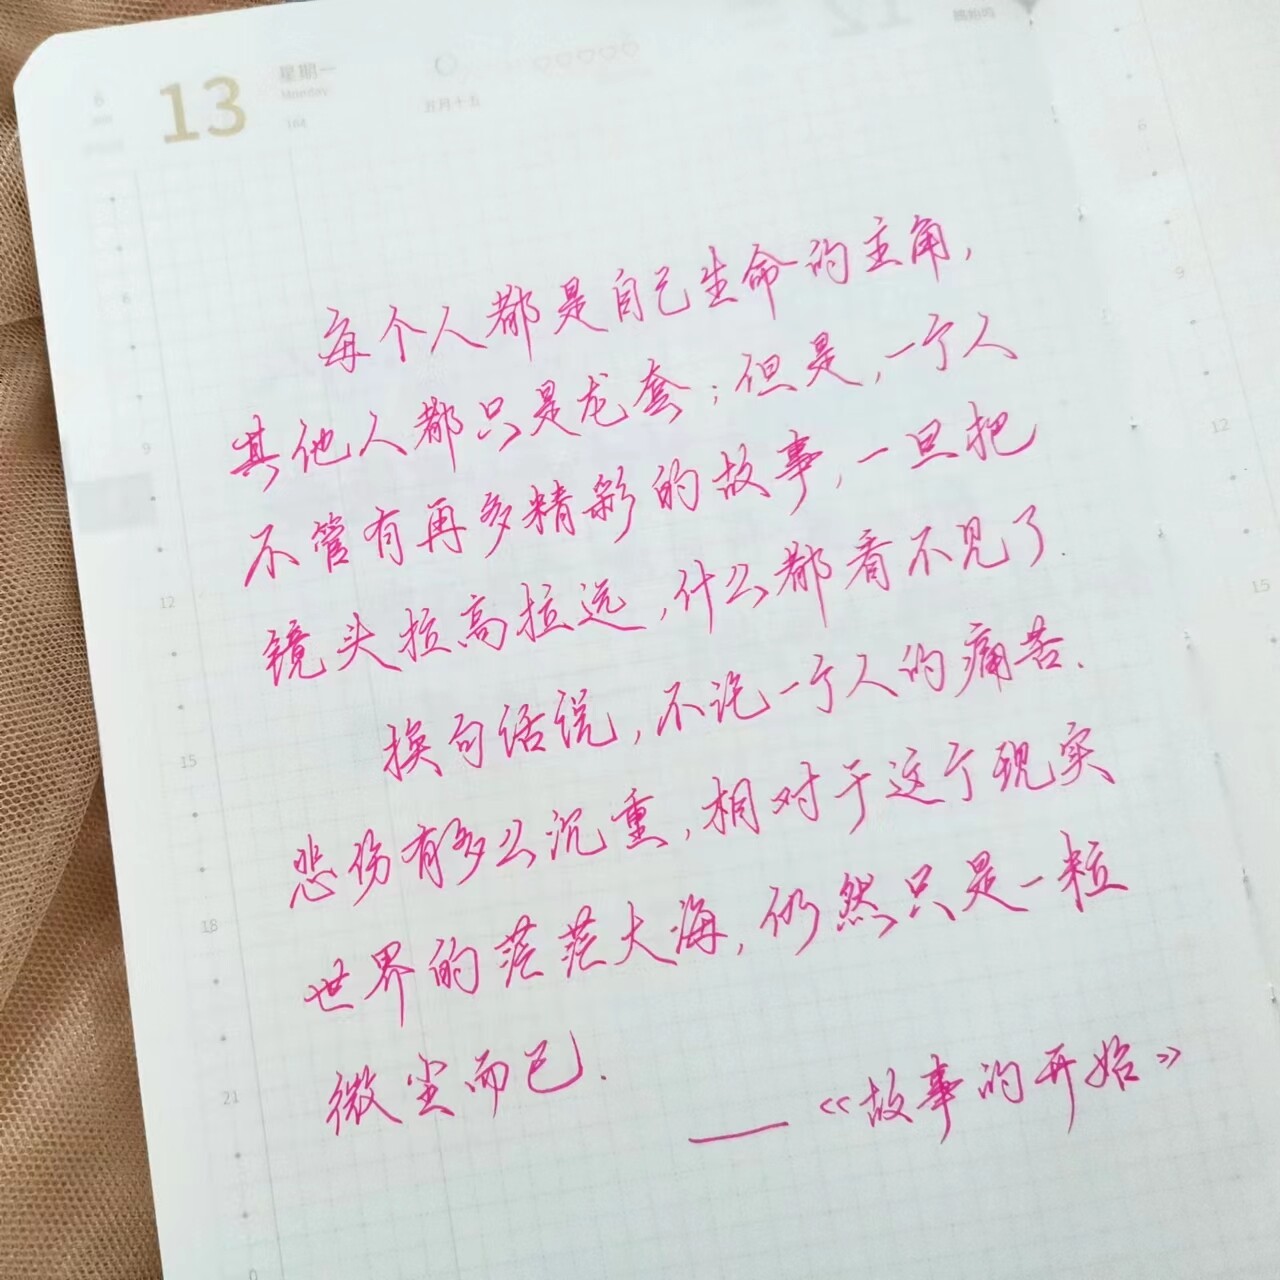 13
星期一
Monday
164
五月十五
6
每个人都是自己生命的主角,
其他人都只是龙套;但是,一个人
不管有再多精彩的故事,一旦把
镜头拉高拉远,什么都看不见了.
换句话说,不论一个人的痛苦.
悲伤有多么沉重,相对于这个现实
世界的茫茫大海,仍然只是一粒
微尘而已.
——《故事的开始》
6
9
12
15
18
21
0
6
9
12
15